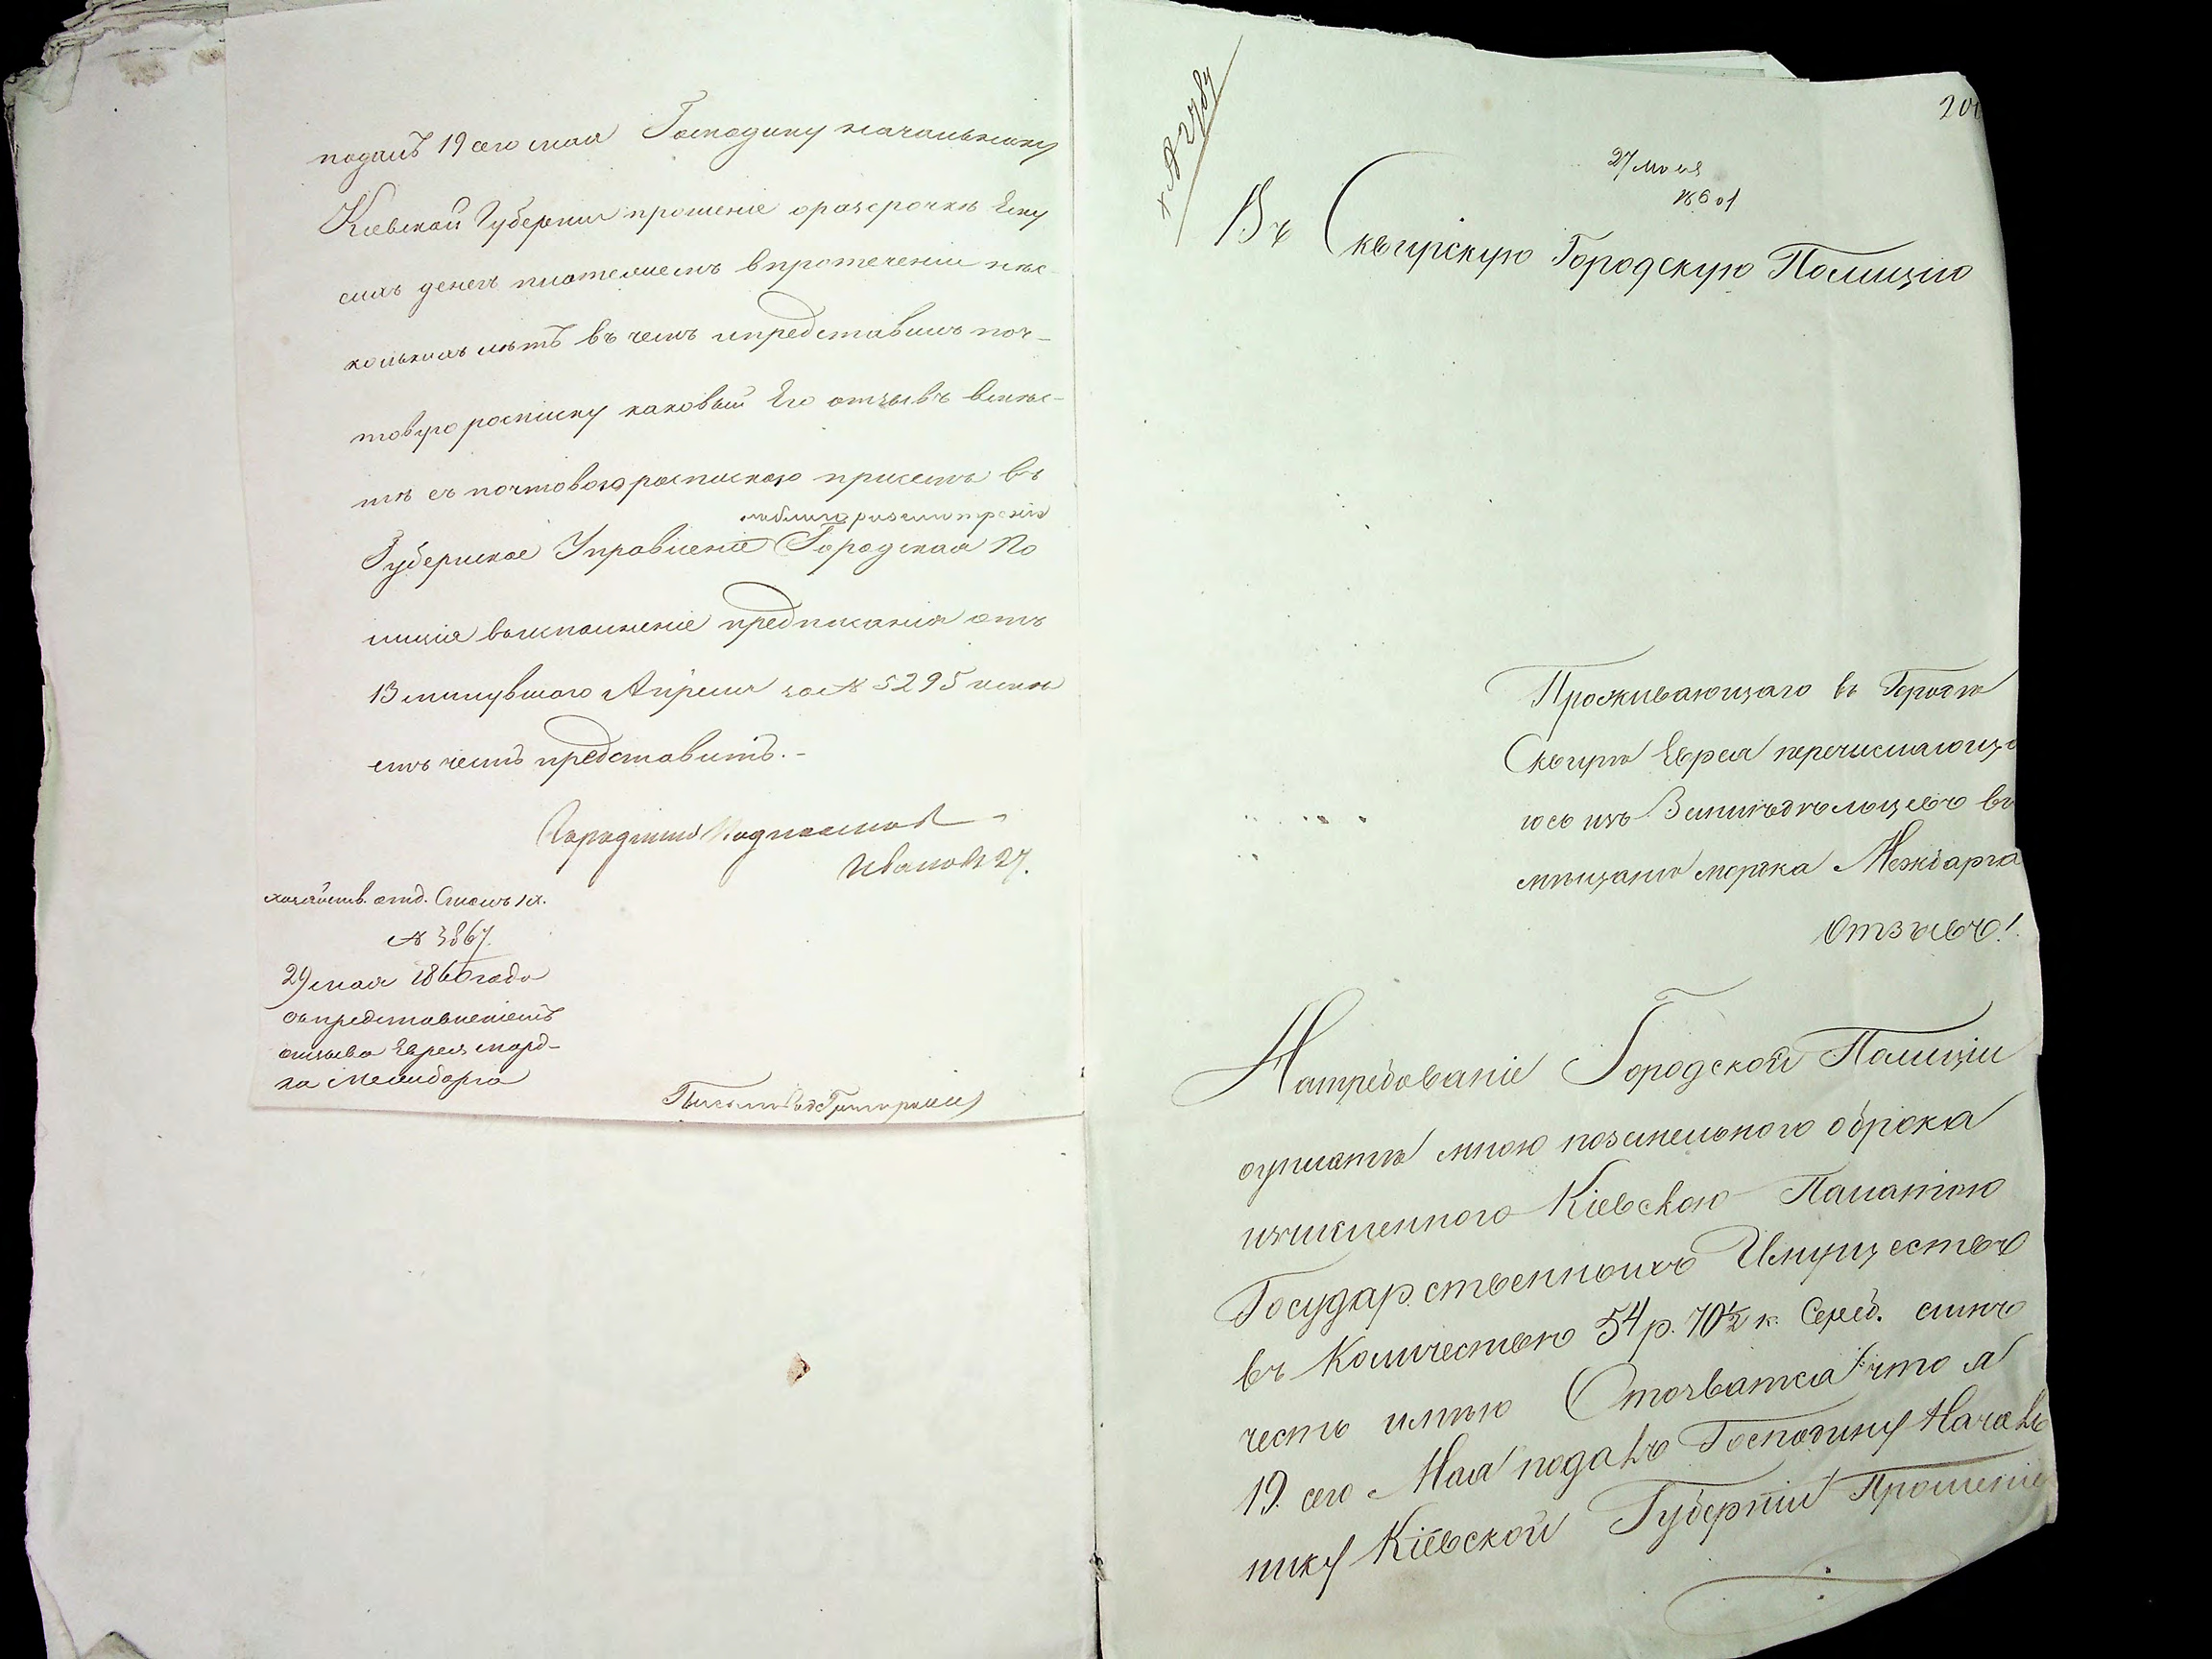 подалъ 19 сего мая Господину начальнику
Кіевской Губерніи прошеніе о разсрочкѣ Ему
сихъ денегъ платежемъ впротеченіи нѣс-
колькихъ лѣтъ въ чемъ ипредставилъ поч-
товую росписку каковый Его отзывъ вмѣс-
тѣ съ почтовою роспискою при семъ въ
на благоразсмотреніе
Губернское Управленіе Городская По
лиція воисполненіе предписанія отъ
13 минувшаго Апреля за № 5295 имѣ
етъ честь представить.-
Городничій
Ивановъ 27.
хозяйств. отд. Столъ 1й.
№ 3867.
29 мая 1860 года
съ представленіемъ
отзыва ЕвреяМорд-
ка
27 мая
Въ Сквирскую Городскую Полицію
Проживающаго въ Городѣ
Сквирѣ Еврея перечисляющаго
юсь изъ Земледѣльцевъ въ
мѣщане Мортка
Отзывъ!
На требованіе Городской Полиціи
оуплатѣ мною поземельного оброка
изчисленного Кіевскою Палатою
Государственныхъ Имуществъ
въ Количествѣ 54 р. 70½ к. Сереб. симъ
честь имѣю Отозватся что я
19. сего Мая подалъ Господину Началь
нику Кіевской Губерніи Прошеніе